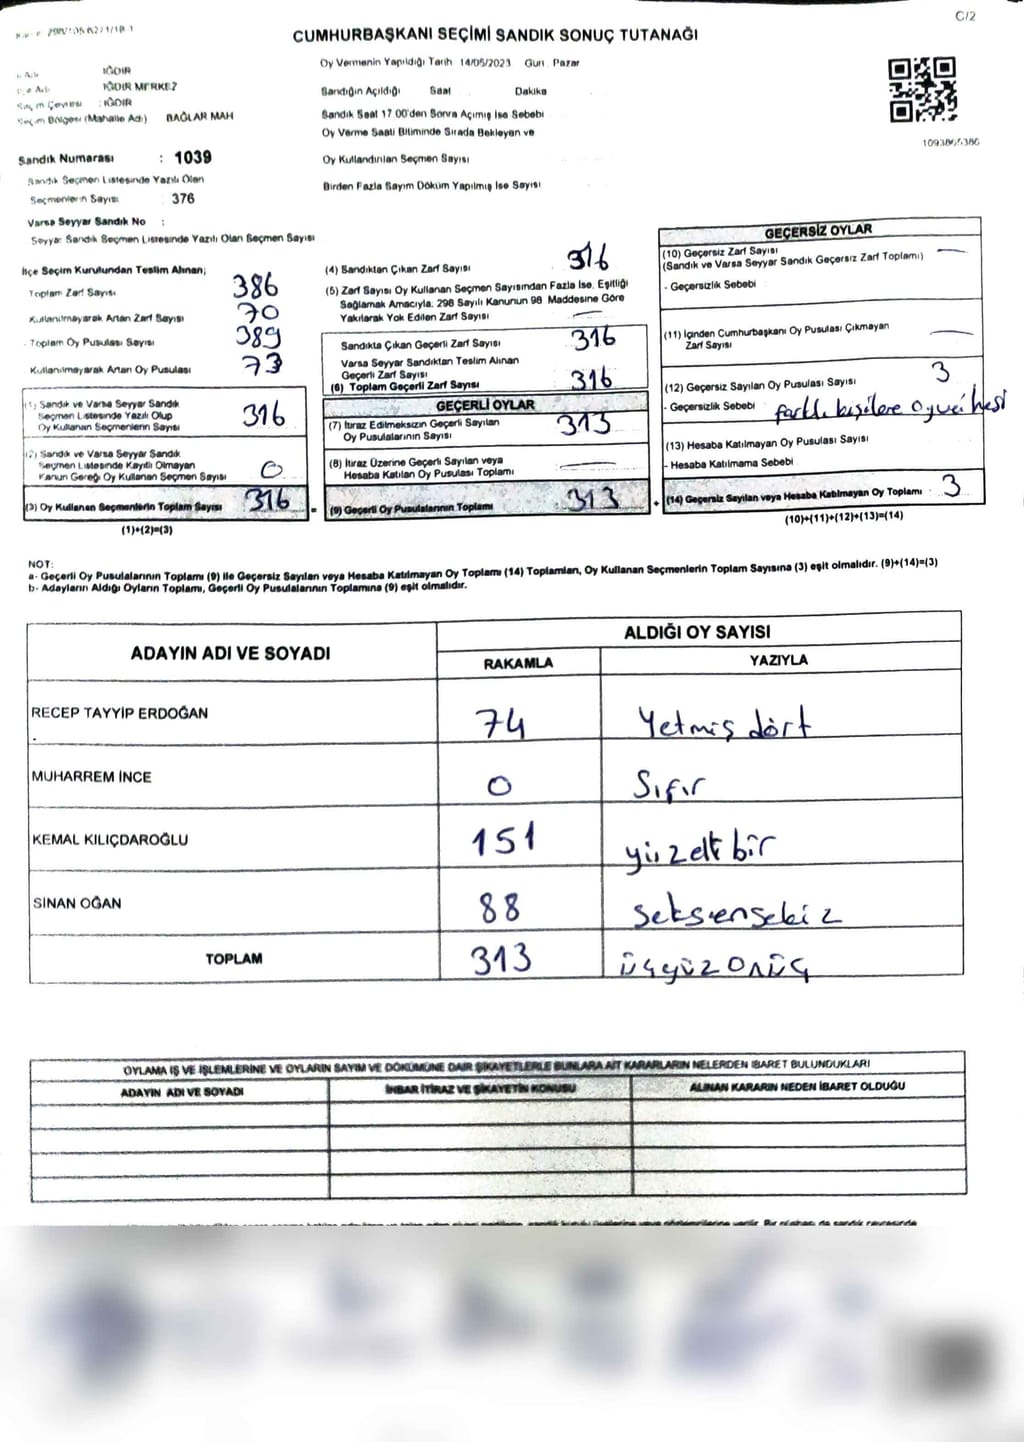 C/2
CUMHURBAŞKANI SEÇİMİ SANDIK SONUÇ TUTANAĞI
Oy Vermenin Yapıldığı Tarih 14/05/2023 Gün Pazar
IĞDIR
IĞDIR MERKEZ
Seçim Çevresi : IĞDIR
Seçim Bölgesi (Mahalle Adı) BAĞLAR MAH
Sandığın Açıldığı Saat Dakika
Sandık Saat 17 00'den Sonra Açımış İse Sebebi
Oy Verme Saati Bitiminde Sırada Bekleyen ve
Oy Kullandırılan Seçmen Sayısı
Birden Fazla Sayım Döküm Yapılmış İse Sayısı
1093865386
Sandık Numarası : 1039
Sandık Seçmen Listesinde Yazılı Olan
Seçmenlerin Sayısı 376
Varsa Seyyar Sandık No :
Seyyar Sandık Seçmen Listesinde Yazılı Olan Seçmen Sayısı
İlçe Seçim Kurulundan Teslim Alınan;
Toplam Zarf Sayısı 386
Kullanılmayarak Artan Zarf Sayısı 70
- Toplam Oy Pusulası Sayısı 389
Kullanılmayarak Artan Oy Pusulası 73
(1) Sandık ve Varsa Seyyar Sandık
Seçmen Listesinde Yazılı Olup
Oy Kullanan Seçmenlerin Sayısı 316
(2) Sandık ve Varsa Seyyar Sandık
Seçmen Listesinde Kayıtlı Olmayan
Kanun Gereği Oy Kullanan Seçmen Sayısı 0
(3) Oy Kullanan Seçmenlerin Toplam Sayısı 316
(1)+(2)=(3)
(4) Sandıktan Çıkan Zarf Sayısı 316
(5) Zarf Sayısı Oy Kullanan Seçmen Sayısından Fazla İse, Eşitliği
Sağlamak Amacıyla, 298 Sayılı Kanunun 98 Maddesine Göre
Yakılarak Yok Edilen Zarf Sayısı —
Sandıkta Çıkan Geçerli Zarf Sayısı 316
Varsa Seyyar Sandıktan Teslim Alınan
Geçerli Zarf Sayısı
(6) Toplam Geçerli Zarf Sayısı 316
GEÇERLİ OYLAR
(7) İtiraz Edilmeksizin Geçerli Sayılan
Oy Pusulalarının Sayısı 313
(8) İtiraz Üzerine Geçerli Sayılan veya
Hesaba Katılan Oy Pusulası Toplamı —
= (9) Geçerli Oy Pusulalarının Toplamı 313 +
GEÇERSİZ OYLAR
(10) Geçersiz Zarf Sayısı —
(Sandık ve Varsa Seyyar Sandık Geçersiz Zarf Toplamı)
- Geçersizlik Sebebi
(11) İçinden Cumhurbaşkanı Oy Pusulası Çıkmayan
Zarf Sayısı —
(12) Geçersiz Sayılan Oy Pusulası Sayısı 3
- Geçersizlik Sebebi farklı kişilere
(13) Hesaba Katılmayan Oy Pusulası Sayısı
- Hesaba Katılmama Sebebi
(14) Geçersiz Sayılan veya Hesaba Katılmayan Oy Toplamı 3
(10)+(11)+(12)+(13)=(14)
NOT:
a- Geçerli Oy Pusulalarının Toplamı (9) ile Geçersiz Sayılan veya Hesaba Katılmayan Oy Toplamı (14) Toplamları, Oy Kullanan Seçmenlerin Toplam Sayısına (3) eşit olmalıdır. (9)+(14)=(3)
b- Adayların Aldığı Oyların Toplamı, Geçerli Oy Pusulalarının Toplamına (9) eşit olmalıdır.
ADAYIN ADI VE SOYADI ALDIĞI OY SAYISI
RAKAMLA YAZIYLA
RECEP TAYYİP ERDOĞAN 74 Yetmiş dört
MUHARREM İNCE 0 Sıfır
KEMAL KILIÇDAROĞLU 151 yüzelli bir
SİNAN OĞAN 88 seksensekiz
TOPLAM 313 üçyüzonüç
OYLAMA İŞ VE İŞLEMLERİNE VE OYLARIN SAYIM VE DÖKÜMÜNE DAİR ŞİKAYETLERLE BUNLARA AİT KARARLARIN NELERDEN İBARET BULUNDUKLARI
ADAYIN ADI VE SOYADI İHBAR İTİRAZ VE ŞİKAYETİN KONUSU ALINAN KARARIN NEDEN İBARET OLDUĞU